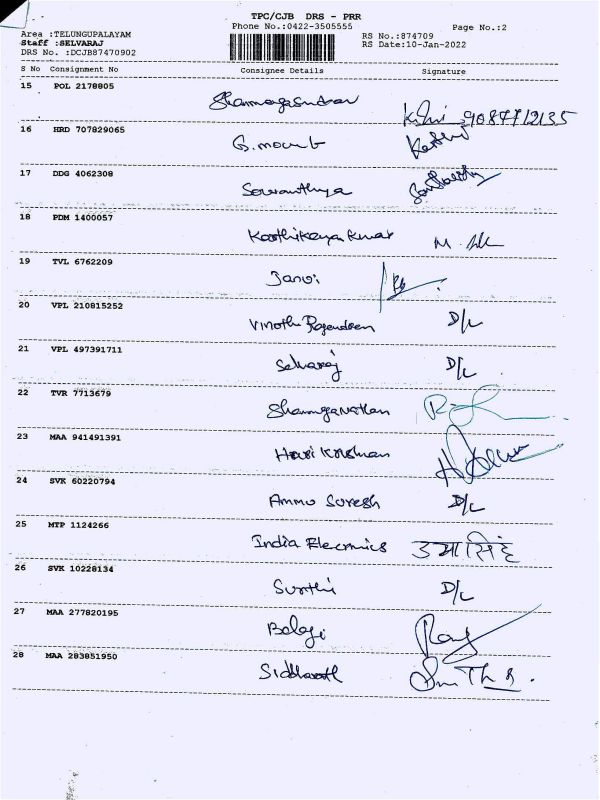 TPC/CJB DRS - PRR
Phone No.:0422-3505555
Page No.:2
Area :TELUNGUPALAYAM
RS No.:874709
Staff :SELVARAJ
RS Date:10-Jan-2022
DRS No. :DCJB87470902
S No Consignment No Consignee Details Signature
15 POL 2178805
Shanmugasundar 9087712135
16 HRD 707829065
G.
17 DDG 4062308
Sowanthya
18 PDM 1400057
Karthikeya Kumar M.
19 TVL 6762209
Janvi
20 VPL 210815252
Vinoth Rajendren D/L
21 VPL 497391711
Selvaraj D/L
22 TVR 7713679
Shanmuganathan
23 MAA 941491391
Hari Krishnan
24 SVK 60220794
Ammu Suresh D/L
25 MTP 1124266
India Elecrnics उमा सिंह
26 SVK 10228134
Suothi D/L
27 MAA 277820195
Balaji
28 MAA 283851950
Siddharath